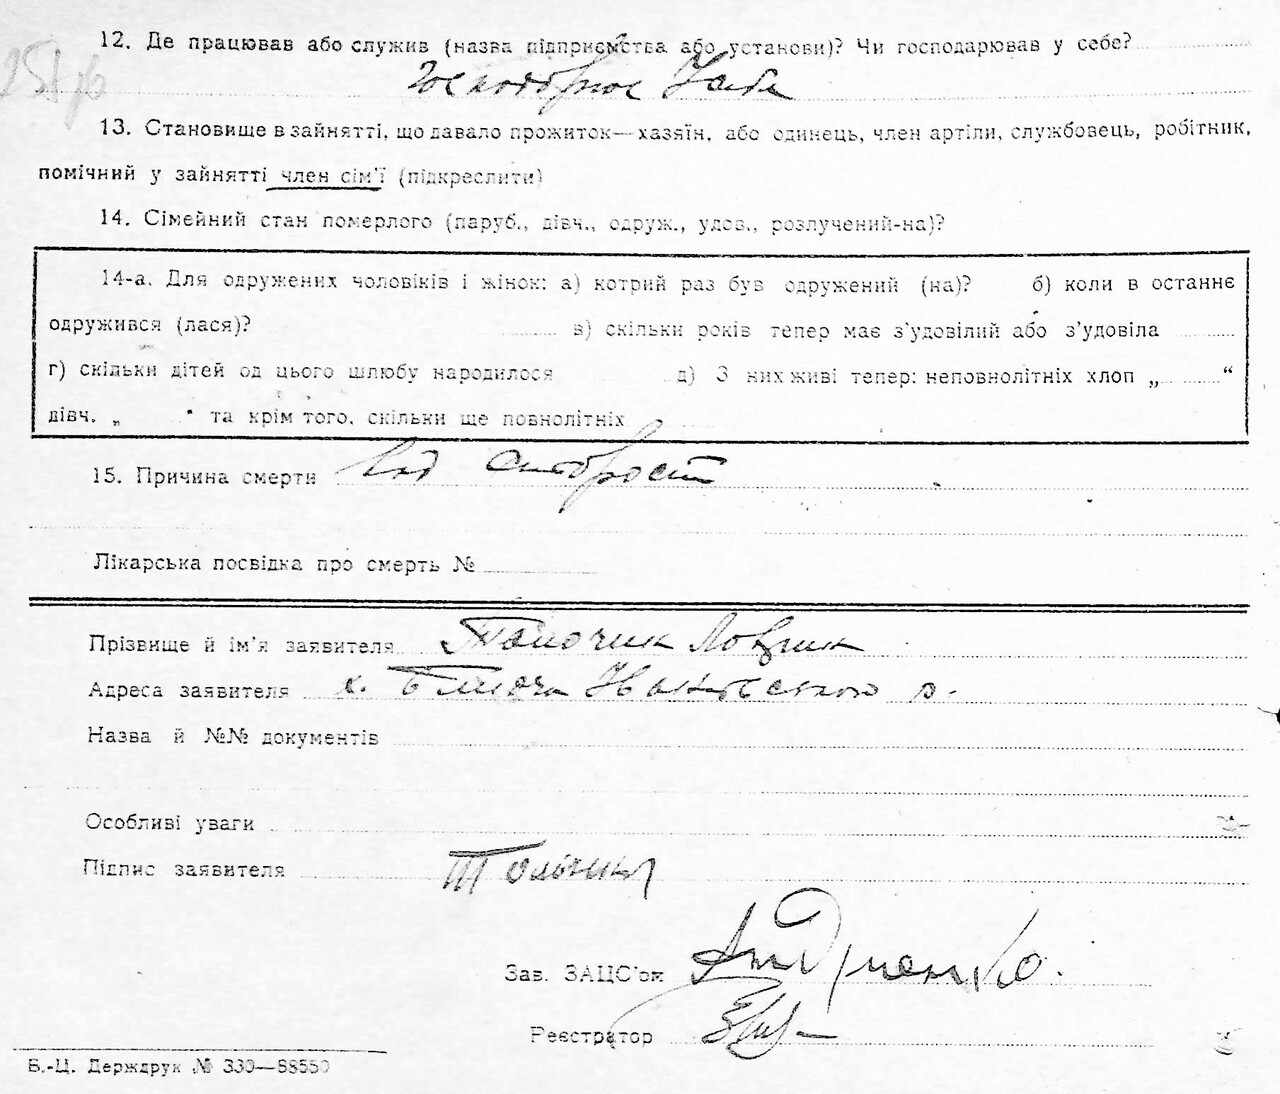 12. Де працював або служив (назва підприємства або установи)? Чи господарював у себе?
13. Становище в зайнятті, що давало прожиток—хазяїн, або одинець, член артіли, службовець, робітник,
помічний у зайнятті член сім'ї (підкреслити)
14. Сімейний стан померлого (паруб., дівч., одруж., удов., розлучений-на)?
14-а. Для одружених чоловіків і жінок: а) котрий раз був одружений (на)? б) коли в останнє
одружився (лася)? в) скільки років тепер має з'удовілий або з'удовіла
г) скільки дітей од цього шлюбу народилося д) З них живі тепер: неповнолітніх хлоп „ “
дівч. „ " та крім того, скільки ще повнолітніх
15. Причина смерти Від старост
Лікарська посвідка про смерть №
Прізвище й ім'я заявителя
Адреса заявителя х.
Назва й №№ документів
Особливі уваги
Підпис заявителя
Зав. ЗАЦС'ом
Реєстратор
Б.-Ц. Держдрук № 330—88550